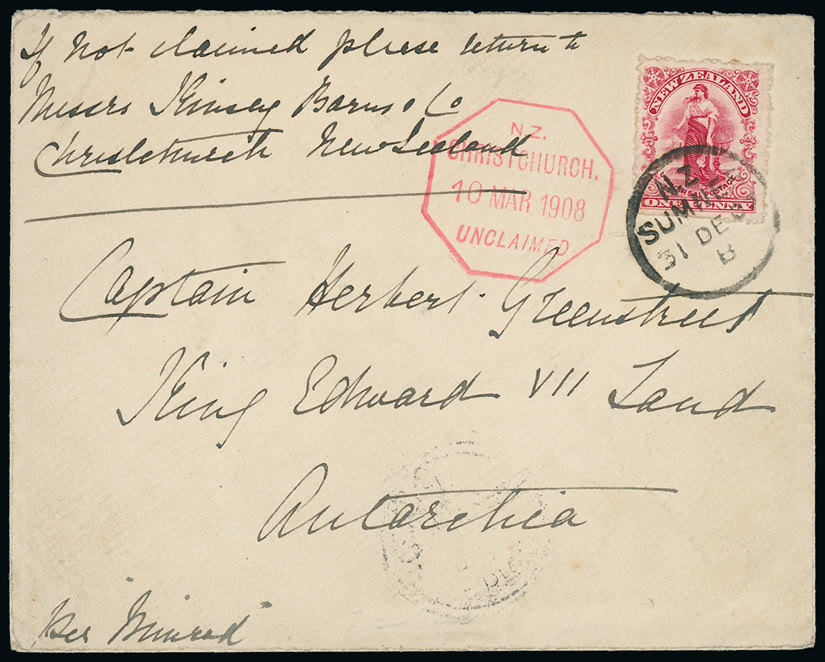 If not claimed please return to
Messrs Kinsey Barns & Co
Christchurch New Zealand
N.Z.
CHRISTCHURCH.
10 MAR 1908
UNCLAIMED
NEW ZEALAND
UNIVERSAL POSTAGE
ONE PENNY
N.Z.
SUMNER
31 DE
B
Captain Herbert Greenstreet
King Edward VII Land
Antarctica
per Nimrod